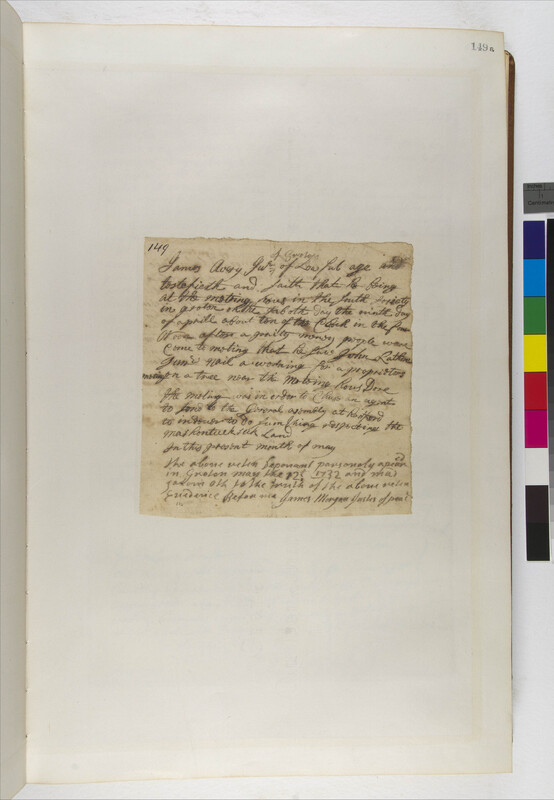 149a
149
of Groton
James Avery Junr of Lawful age and
testefieth and saith that he being
at the meeting hous in the south society
in groton on the saboth day the ninth day
of aprill about ten of the Clock in the
after a goodly people were
Come to meeting that he see John Latham
nail a worning for a propriators
meting on a tree near the meeting hous Dore
the meting was in order to Chuse an agent
to send to the General asembly at hartford
to indever to Do sum thing respecting the
Land
in this present month of may
the above riten Deponant parsonaly apeard
in Groton may the 1732 and mad
oth to the truth of the above riten
Evidence Before me James Morgan Justes of peac